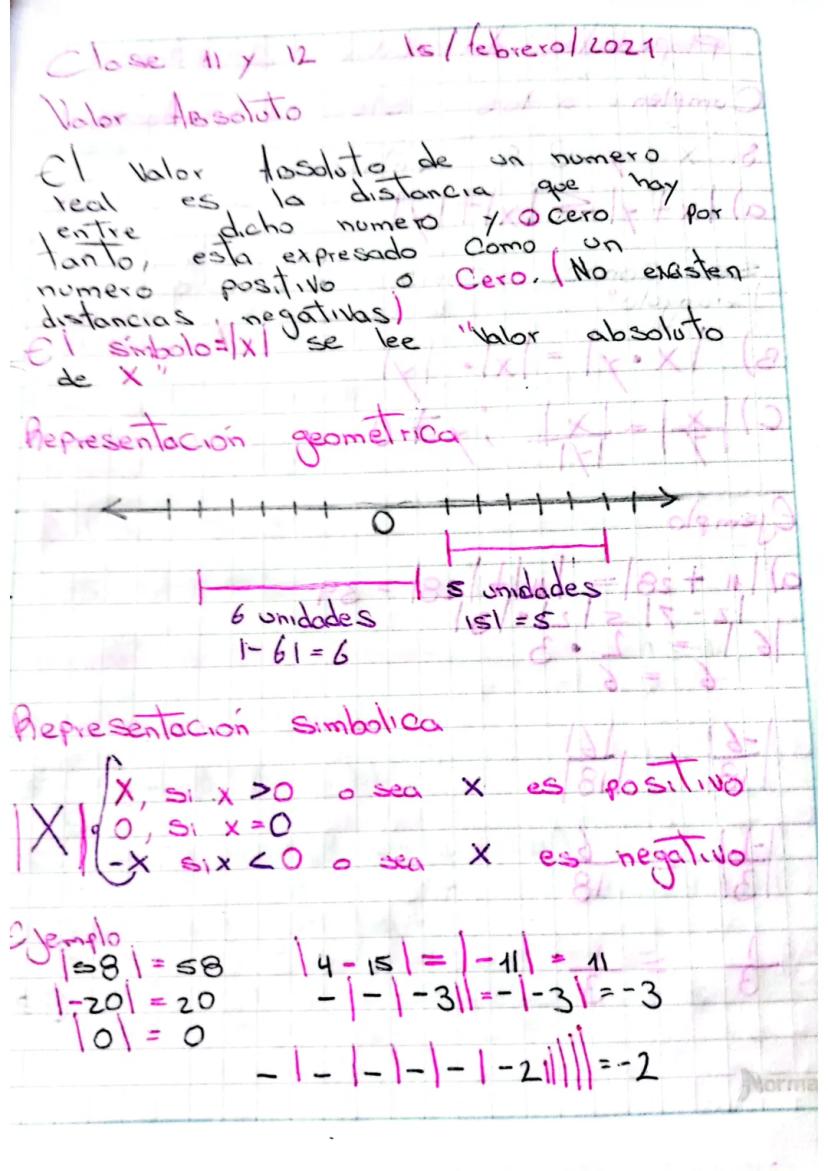 Clase 11 y 12 15/febrero/2021
Valor Absoluto
El Valor Absoluto de un numero
real es la distancia que hay
entre dicho numero y 0 cero por
tanto, esta expresado como un
numero positivo o Cero. (No existen
distancias negativas)
El símbolo=|x| se lee "Valor absoluto
de X"
Representación geometrica
0
5 unidades
6 unidades |5| = 5
|-6| = 6
Representación simbolica
X, si x >0 o sea X es positivo
|X| 0, si x=0
-X si x < 0 o sea X es negativo
Ejemplo
|58| = 58 |4 - 15| = |-11| = 11
|-20| = 20 -|-|-3|| = -|-3| = -3
|0| = 0
-|-|-|-|-|-2||||| = -2
Norma